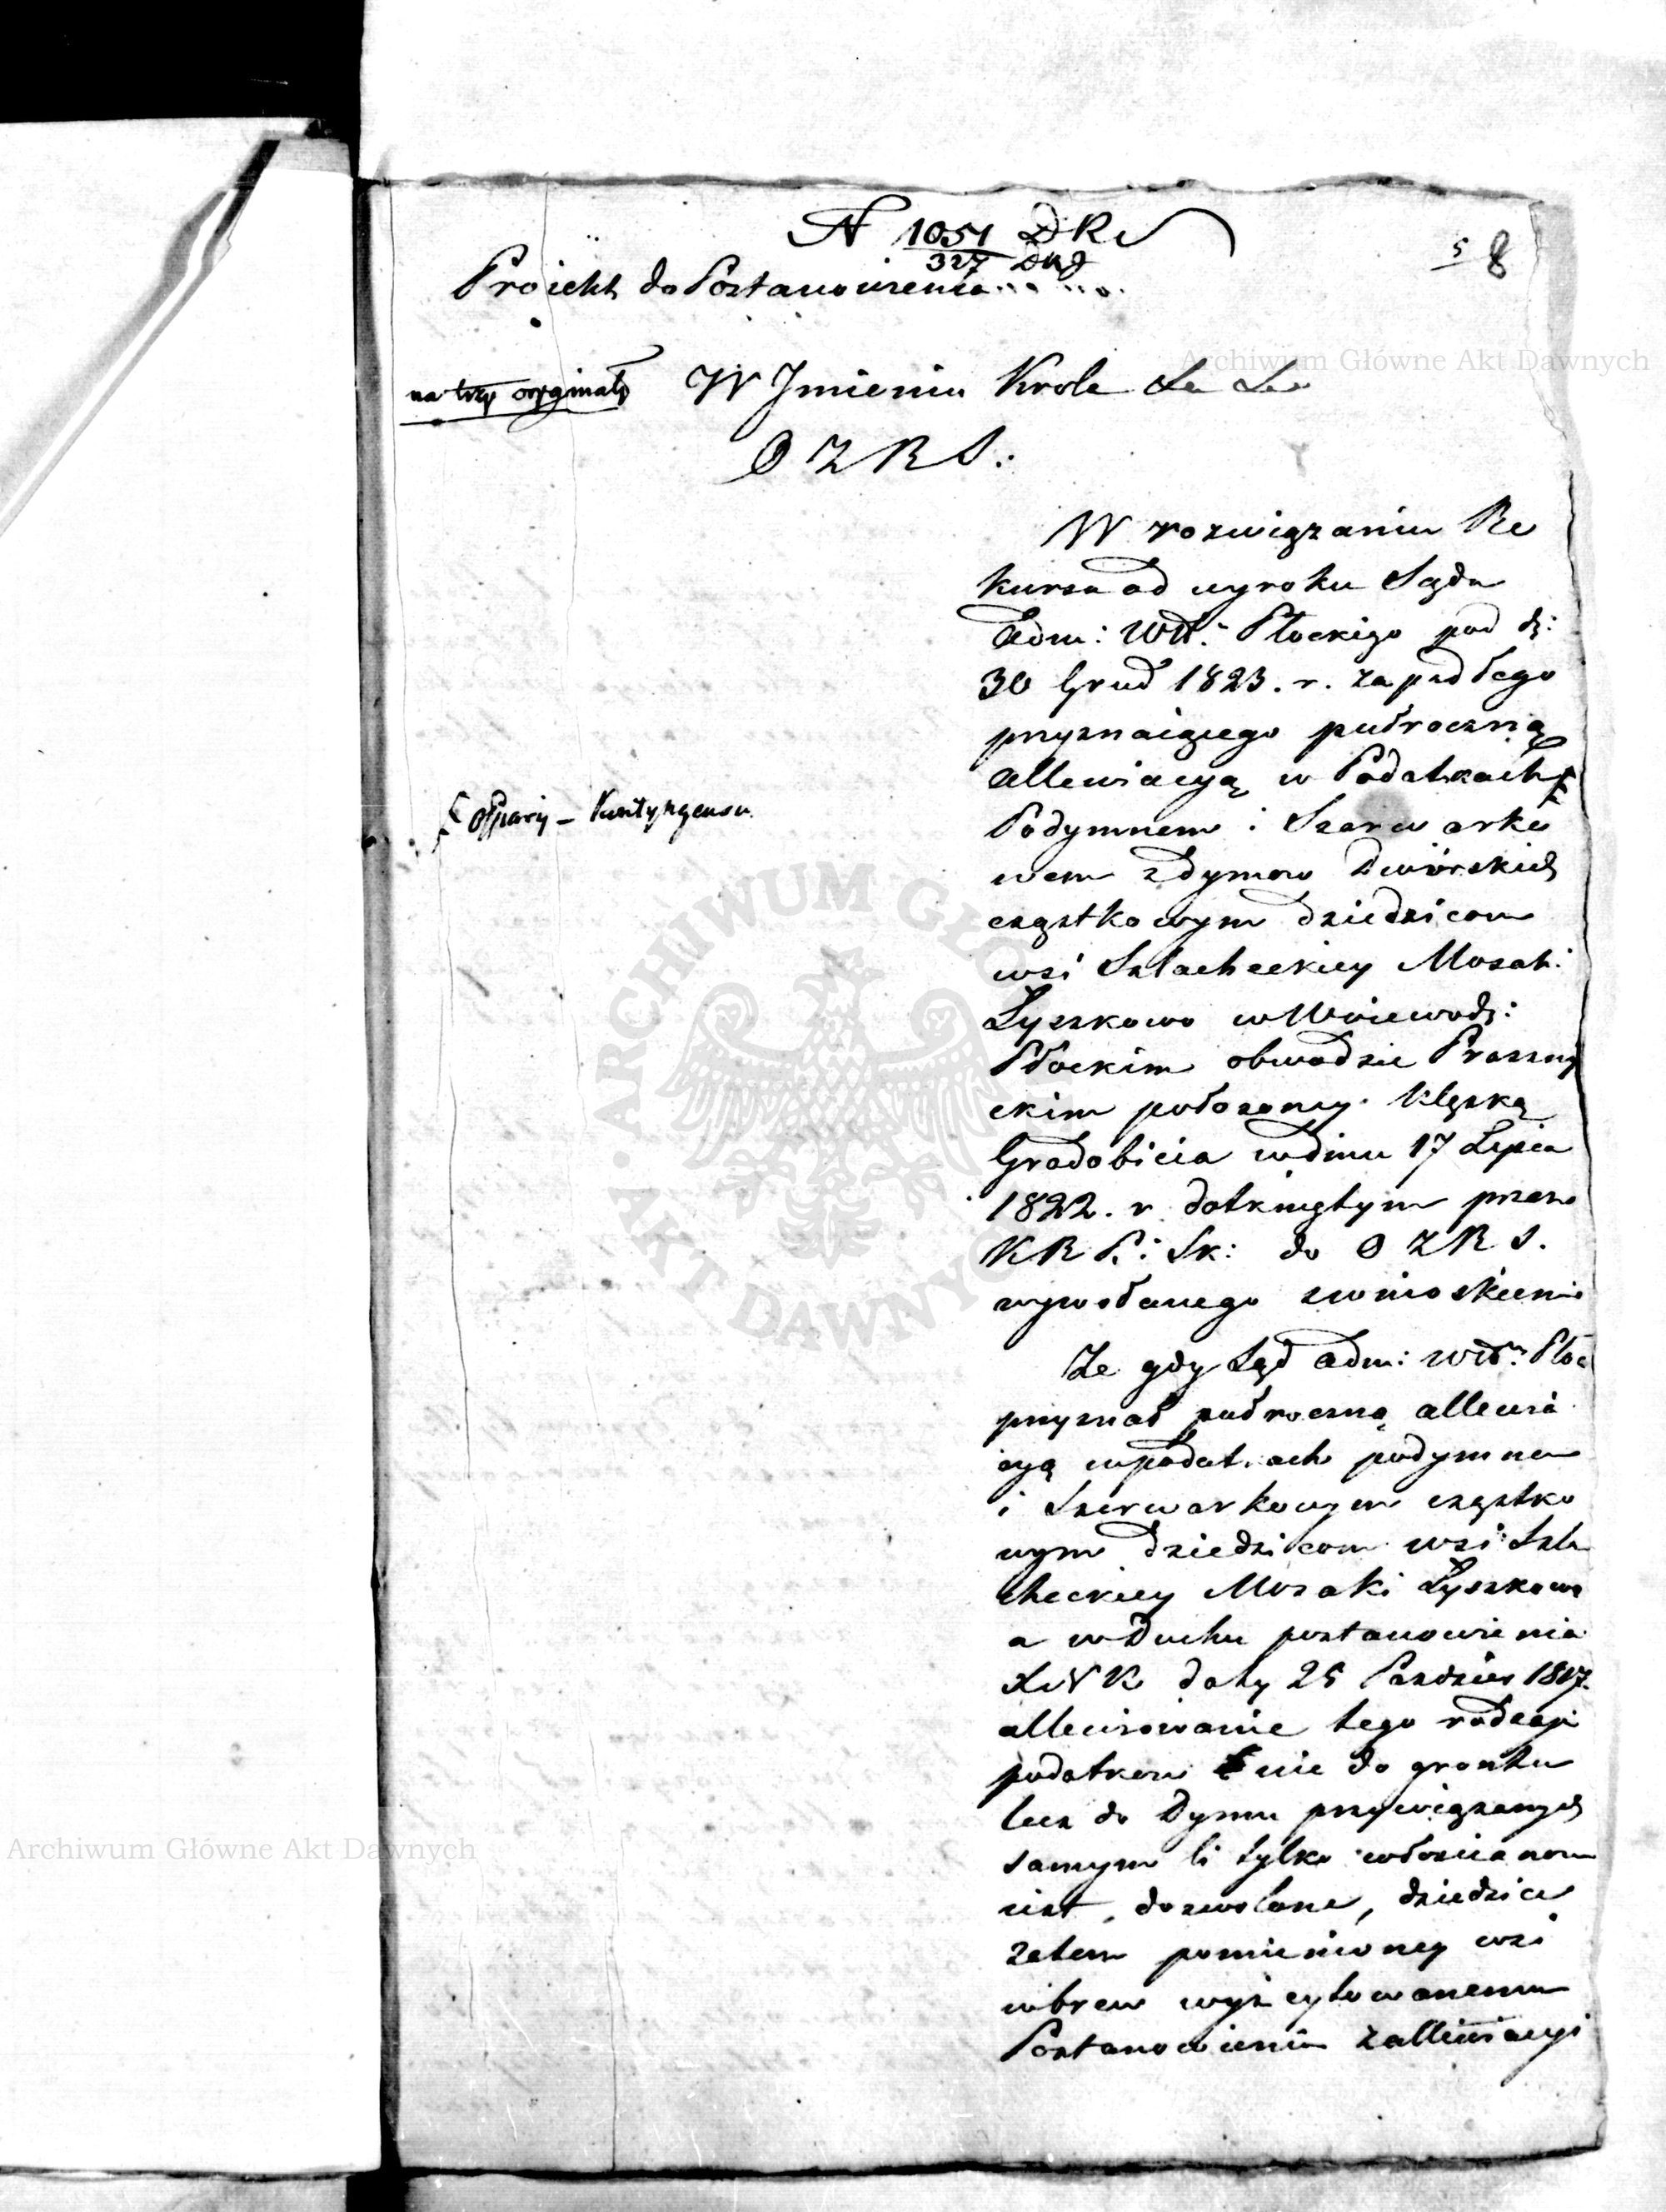 N 1051 DRs
327 Dnd
5 8
Proiekt do Postanowienia
na trzy oryginały
W Jmieniu Krola &c &c
O Z R S.:
W rozwiązaniu Re
kursu od wyroku Sądu
Adm: Wdt: Płockiego pod d:
30 Grud 1823. r. zapadłego
przyznaiącego pułroczną
allewiacyą w Podatkach
ofiary – Kontyngensu
Podymnem i Szarwarko
wem z dymow Dwórskich
cząstkowym dziedzicom
wsi Szlacheckiey Mosaki
Łyszkowo w Woiewodz:
Płockim obwodzie Przasny
ckim położoney klęską
Gradobicia w dniu 17 Lipca
1822. r. dotkniętym przez
K R P. i Sk: do O Z R S.
wywołanego z wnioskiem
Że gdy Sąd adm: Wdt: Płoc
przyznał pułroczną allewia
cyą w podatkach podymnem
i Szarwarkowym cząstko
wym dziedzicom wsi Szla
checkiey Mosaki Łyszkowo
a w Duchu postanowienia
X N K daty 25 Pazdzier 1817.
allewiowanie tego rodzaju
podatkow nie do gruntu
lecz do Dymu przywiązanych
samym li tylko włoscianom
iest dozwolone, dziedzice
zatem pomienioney wsi
wbrew wyż cytowanemu
Postanowieniu z allewiacyi
Archiwum Główne Akt Dawnych
Archiwum Główne Akt Dawnych
ARCHIWUM GŁÓWNE AKT DAWNYCH